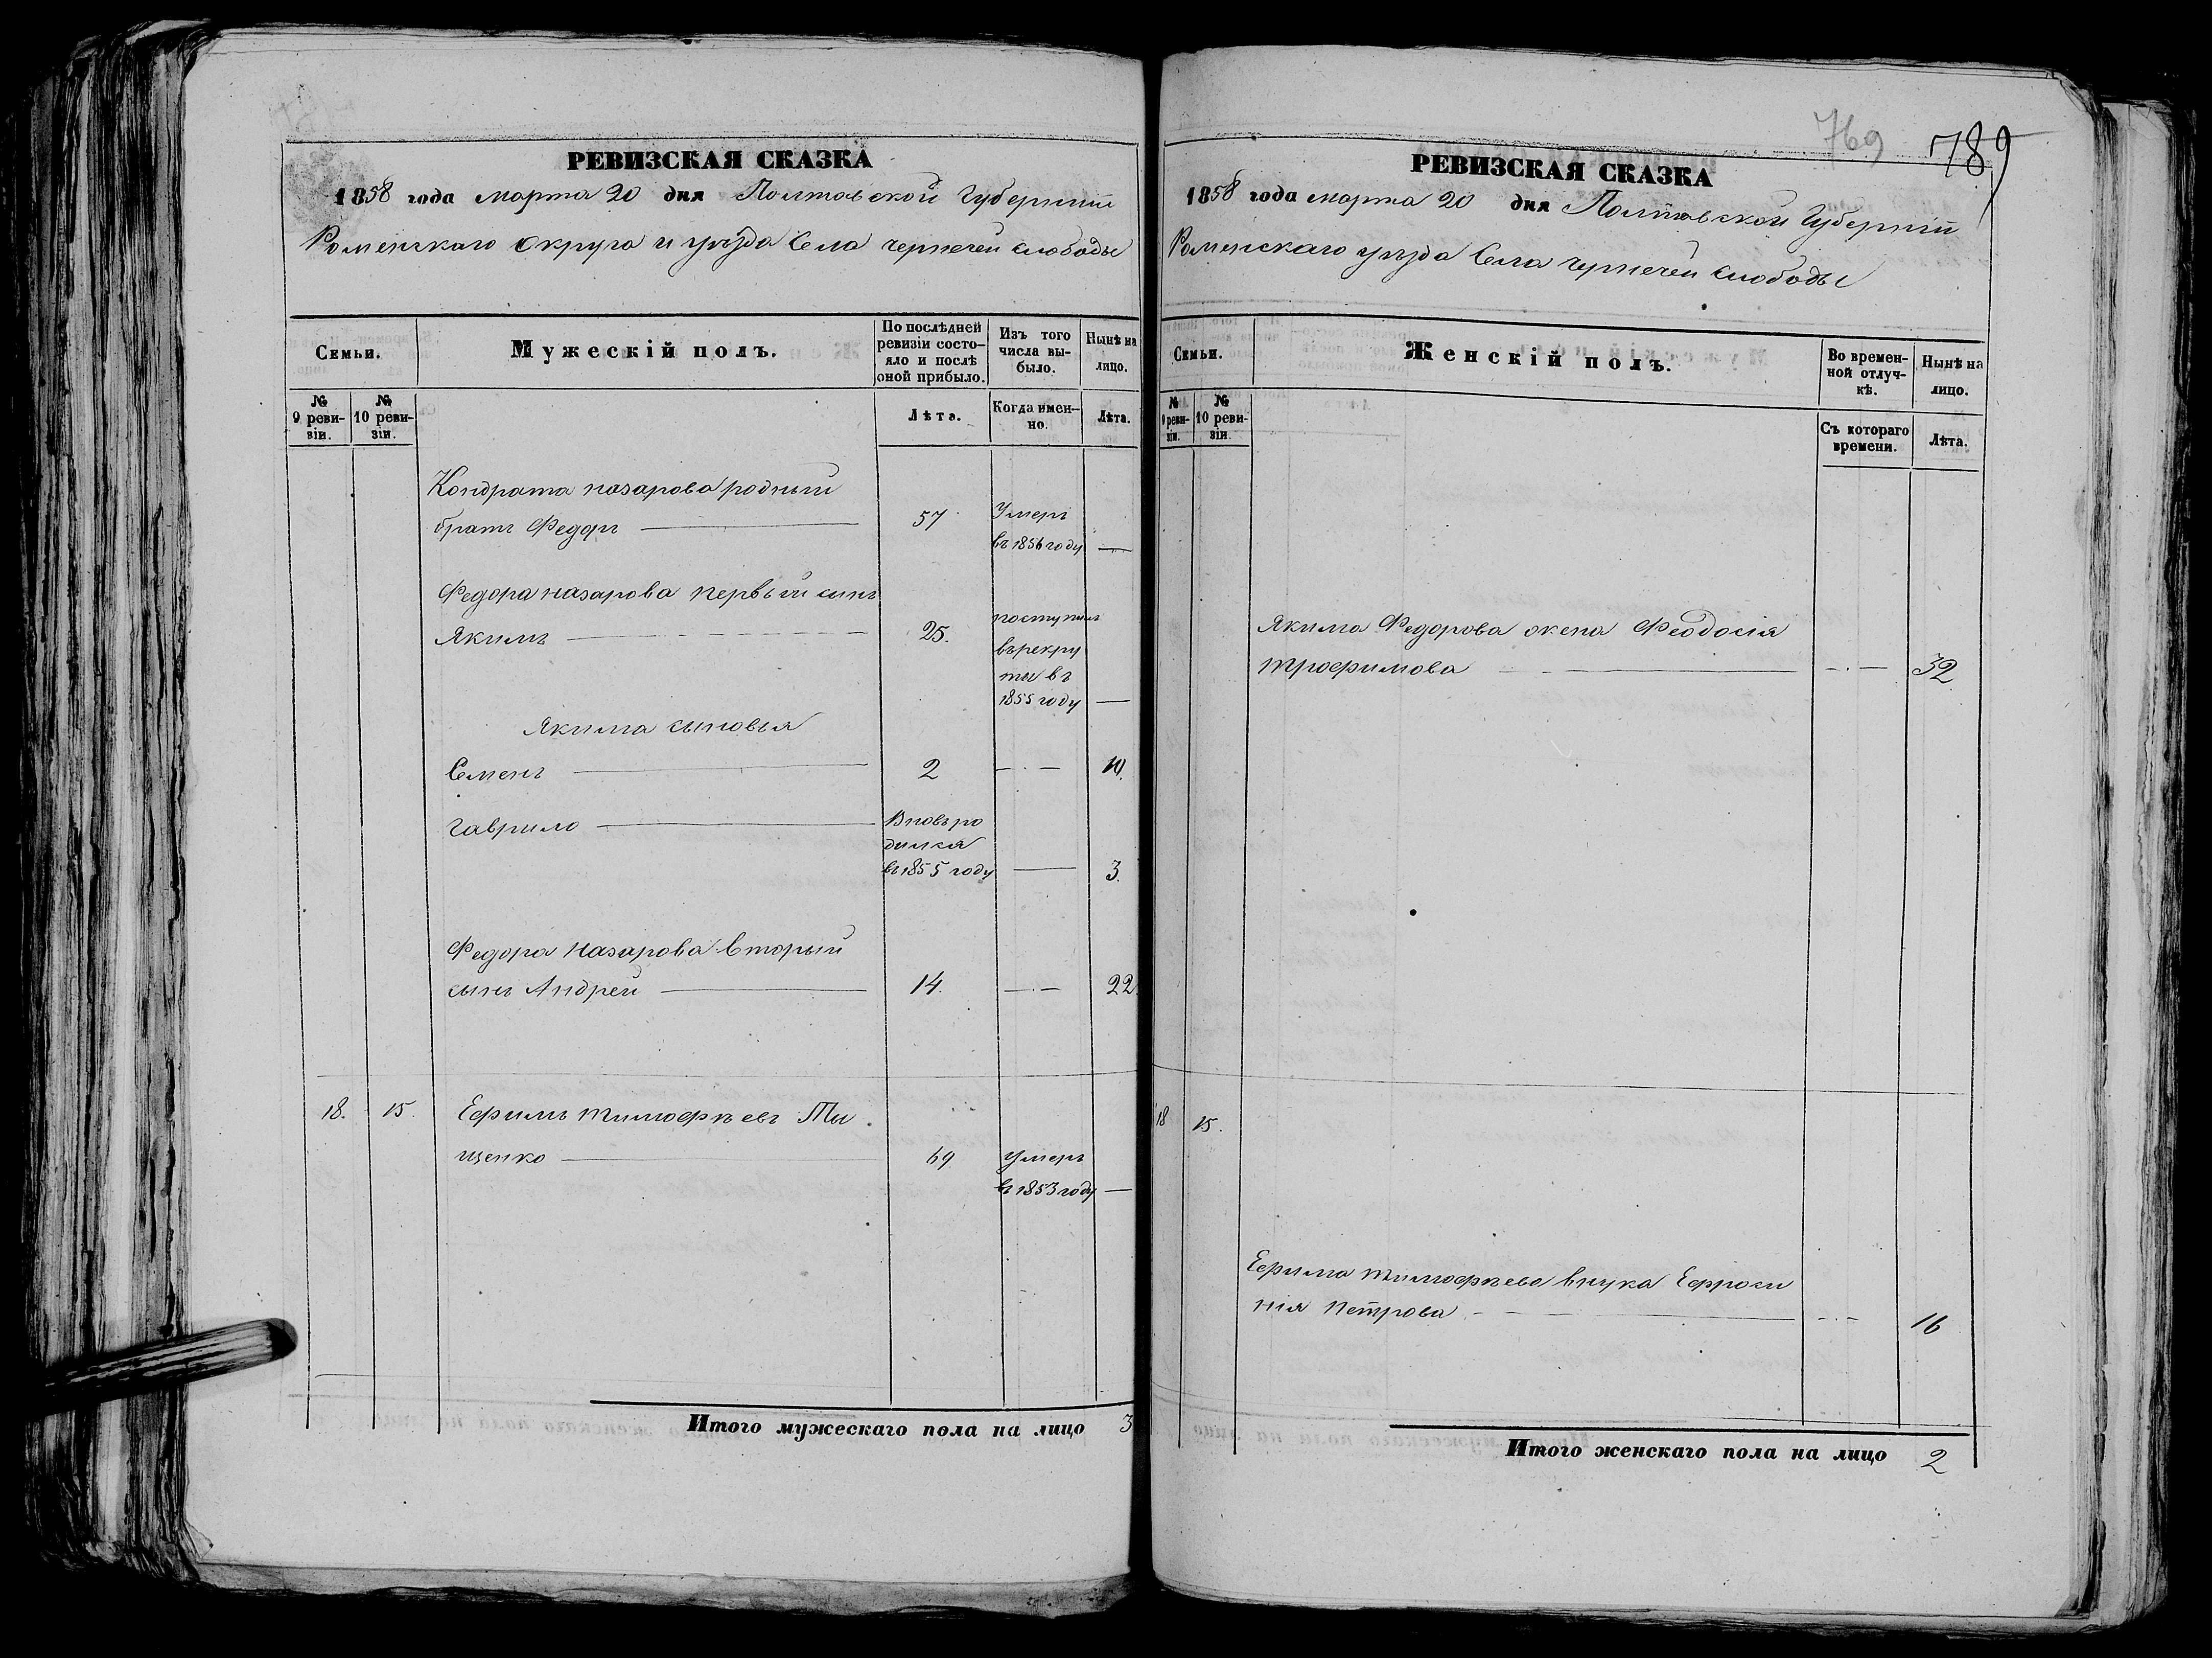 РЕВИЗСКАЯ СКАЗКА
1858 года марта 20 дня Полтавской Губернiи
Роменскаго округа и уѣзда Села чернечей слободы
Семьи.
Мужескiй полъ.
По послѣдней ревизiи состо-яло и послѣ оной прибыло.
Изъ того числа вы-было.
Нынѣ на лицо.
№ 9 реви-зiи.
№ 10 реви-зiи.
Лѣта.
Когда имен-но.
Лѣта.
Кондрата назарова родный
братъ Федоръ 57 Умеръ
въ 1856 году
Федора назарова первый сынъ
Якимъ 25. поступилъ
въ рекру
ты въ
1855 году
Якима сыновья
Семенъ 2 10.
Гаврило Вновь ро
дился
въ 1855 году 3.
Федора назарова вторый
сынъ Андрей 14. 22.
18. 15. Ефимъ тимофѣевъ Ти
щенко 69 Умеръ
въ 1853 году
Итого мужескаго пола на лицо 3
769 789
РЕВИЗСКАЯ СКАЗКА
1858 года марта 20 дня Полтавской Губернiи
Роменскаго уѣзда Села чернечей слободы
Семьи.
Женскiй полъ.
Во времен-ной отлуч-кѣ.
Нынѣ на лицо.
№ 9 реви-зiи.
№ 10 реви-зiи.
Съ котораго времени.
Лѣта.
Якима Федорова жена Феодосiя
трофимова 32.
18 15.
Ефима тимофѣева внука Ефроси
нiя петрова 16
Итого женскаго пола на лицо 2